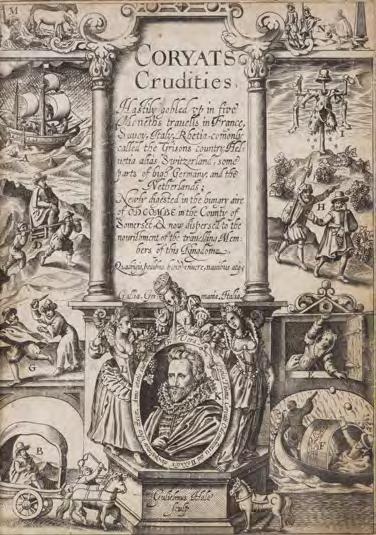 M
N
CORYATS
Crudities.
Hastily gobled vp in five
Moneths travells in France,
Savoy, Italy, Rhetia comonly
called the Grisons country, Hel-
vetia aliàs Switzerland, some
parts of high Germany, and the
Netherlands;
Newly digested in the hungry aire
of ODCOMBE in the County of
Somerset, & now dispersed to the
nourishment of the travelling Mem-
bers of this Kingdome.
A
D
H
Gallia
Germania, Italia
G
B
F
Gulielmus Hole
sculp
C